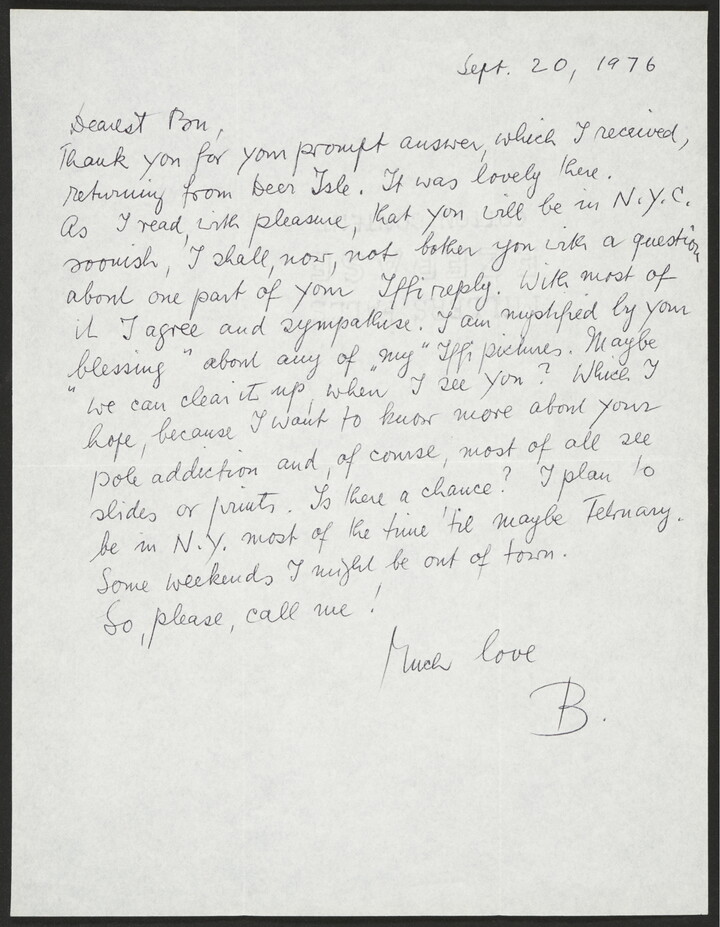 Sept. 20, 1976
Dearest Bu,
Thank you for your prompt answer, which I received,
returning from Deer Isle. It was lovely there.
As I read, with pleasure, that you will be in N.Y.C.
soonish, I shall, now, not bother you with a question
about one part of your Iffi reply. With most of
it I agree and sympathise. I am mystified by your
blessing" about any of "my" Iffi pictures. Maybe
"we can clear it up, when I see you? Which I
hope, because I want to know more about your
pole addiction and, of course, most of all see
slides or prints. Is there a chance? I plan to
be in N.Y. most of the time 'til maybe February.
Some weekends I might be out of town.
So, please, call me!
Much love
B.